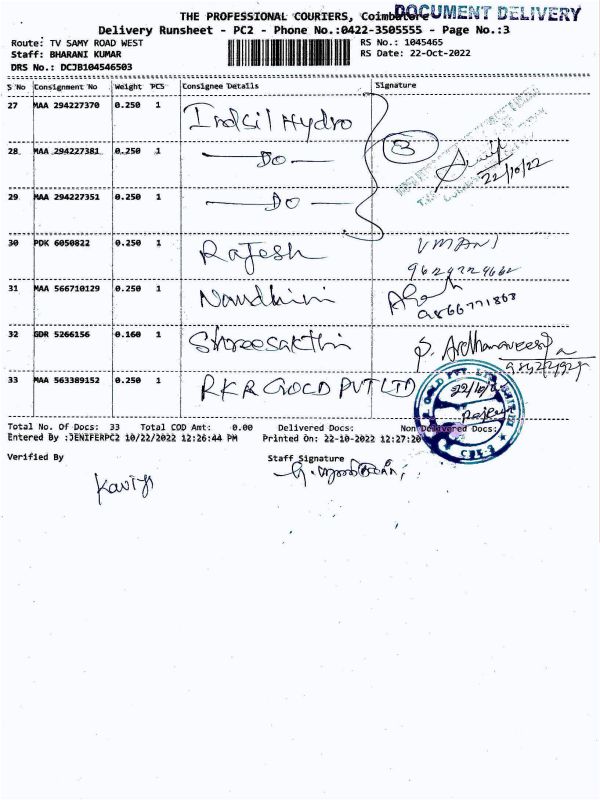 DOCUMENT DELIVERY
THE PROFESSIONAL COURIERS, Coimbatore
Delivery Runsheet - PC2 - Phone No.:0422-3505555 - Page No.:3
Route: TV SAMY ROAD WEST RS No.: 1045465
Staff: BHARANI KUMAR RS Date: 22-Oct-2022
DRS No.: DCJB104546503
S No Consignment No Weight PCS Consignee Details Signature
27 MAA 294227370 0.250 1 Indsil Hydro
28 MAA 294227381 0.250 1 — Do — 3 22/10/22
29 MAA 294227351 0.250 1 — Do —
30 PDK 6050822 0.250 1 Rajesh VMANI
31 MAA 566710129 0.250 1 Nandhini
32 GDR 5266156 0.160 1 Shreesakthi
33 MAA 563389152 0.250 1 RKR GOLD PVT LTD 22/10/22
Rajesh
CBE-2
Total No. Of Docs: 33 Total COD Amt: 0.00 Delivered Docs: Non Delivered Docs:
Entered By :JENIFERPC2 10/22/2022 12:26:44 PM Printed On: 22-10-2022 12:27:20
Verified By Staff Signature